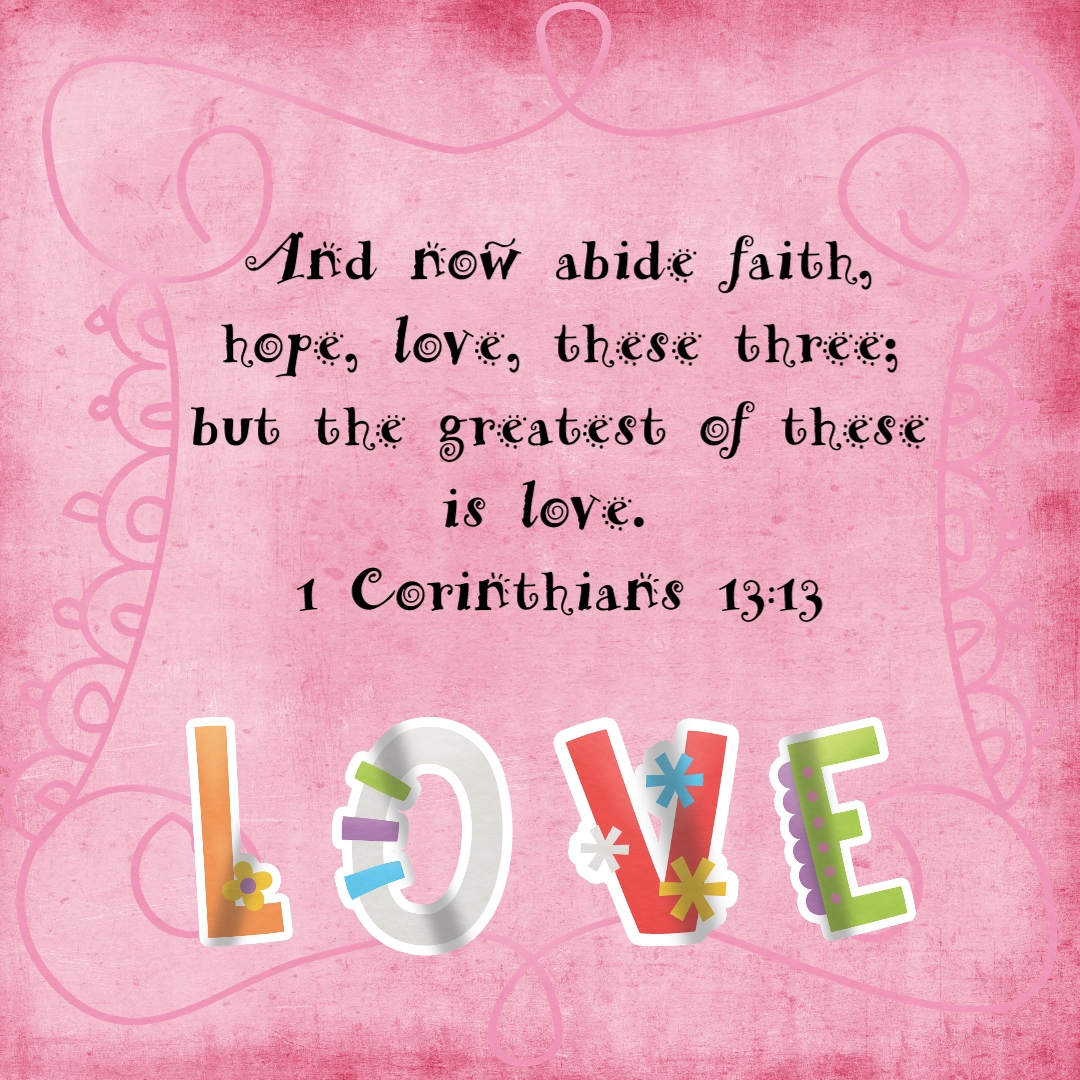 And now abide faith,
hope, love, these three;
but the greatest of these
is love.
1 Corinthians 13:13
LOVE